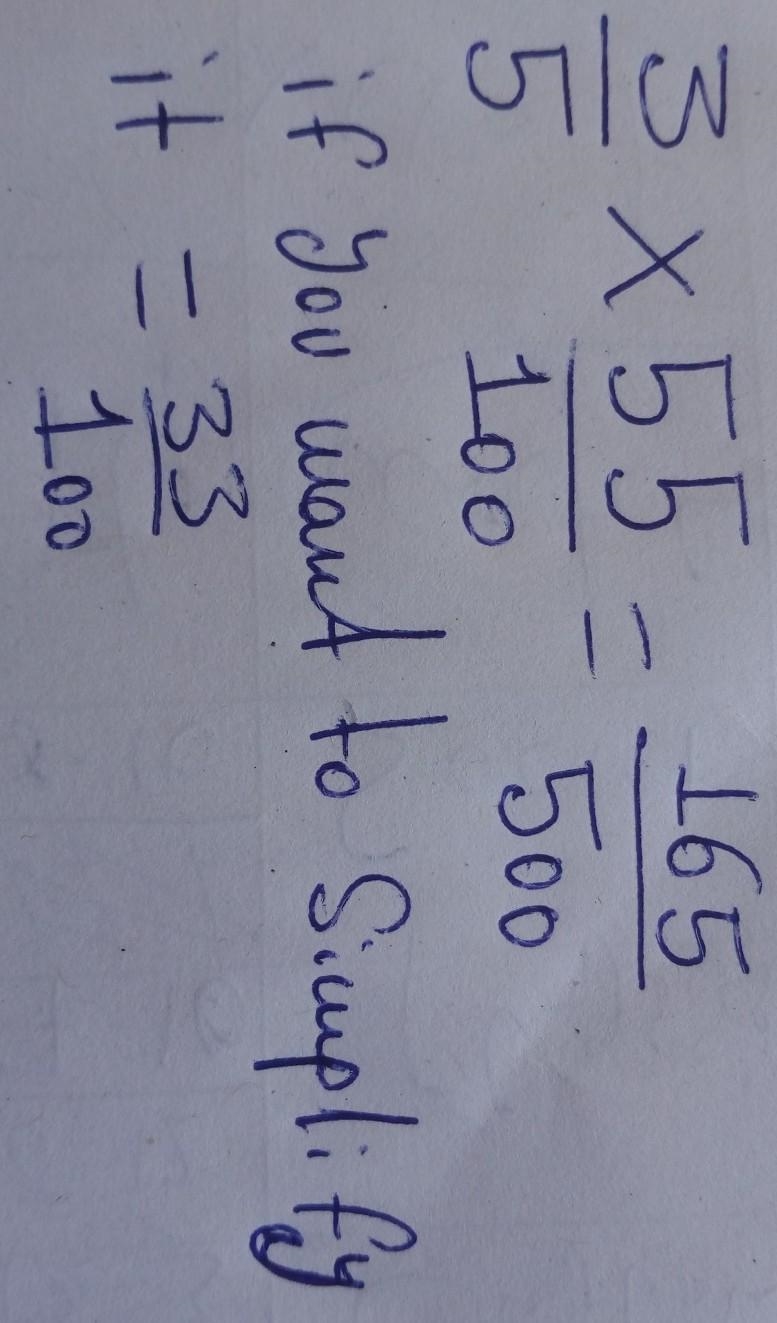 3/5 × 55/100 = 165/500
if you want to Simplify
it = 33/100